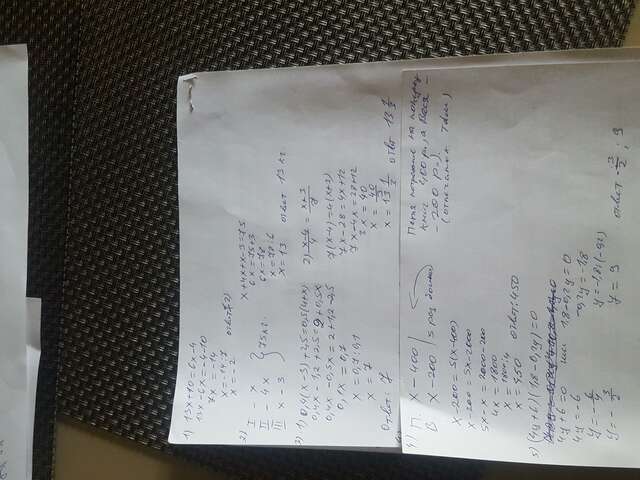 1) 13x+10=6x-4
13x-6x=-4-10
7x=-14
x=-14:7
x=-2
ответ(-2)
2) I - x
II - 4x
III x - 3
} 75кг.
x+4x+x-3=75
6x=75+3
6x=78
x=78:6
x=13
ответ 13 кг.
3) 1) 0,4(x-3)+2,5=0,5(4+x)
0,4x-1,2+2,5=2+0,5x
0,4x-0,5x=2+1,2-2,5
0,1x=0,7
x=0,7:0,1
x=7
Ответ: 7
7(x-4)=4(x+3)
7x-28=4x+12
7x-4x=28+12
3x=40
x=40/3
x=13 1/3
ответ 13 1/3
4) П. x-400
В x-200
5 раз
x-200=5(x-400)
x-200=5x-2000
5x-x=2000-200
4x=1800
x=1800:4
x=450
ответ:450
Петя на
400 р., а Вася -
- 200 р.)
5) (4y+6)(1,8-0,2y)=0
4y+6=0 или 1,8-0,2y=0
4y=-6
y=-6/4
y=-3/2
0,2y=-1,8
y=-1,8:(-0,2)
y=9
ответ -3/2; 9